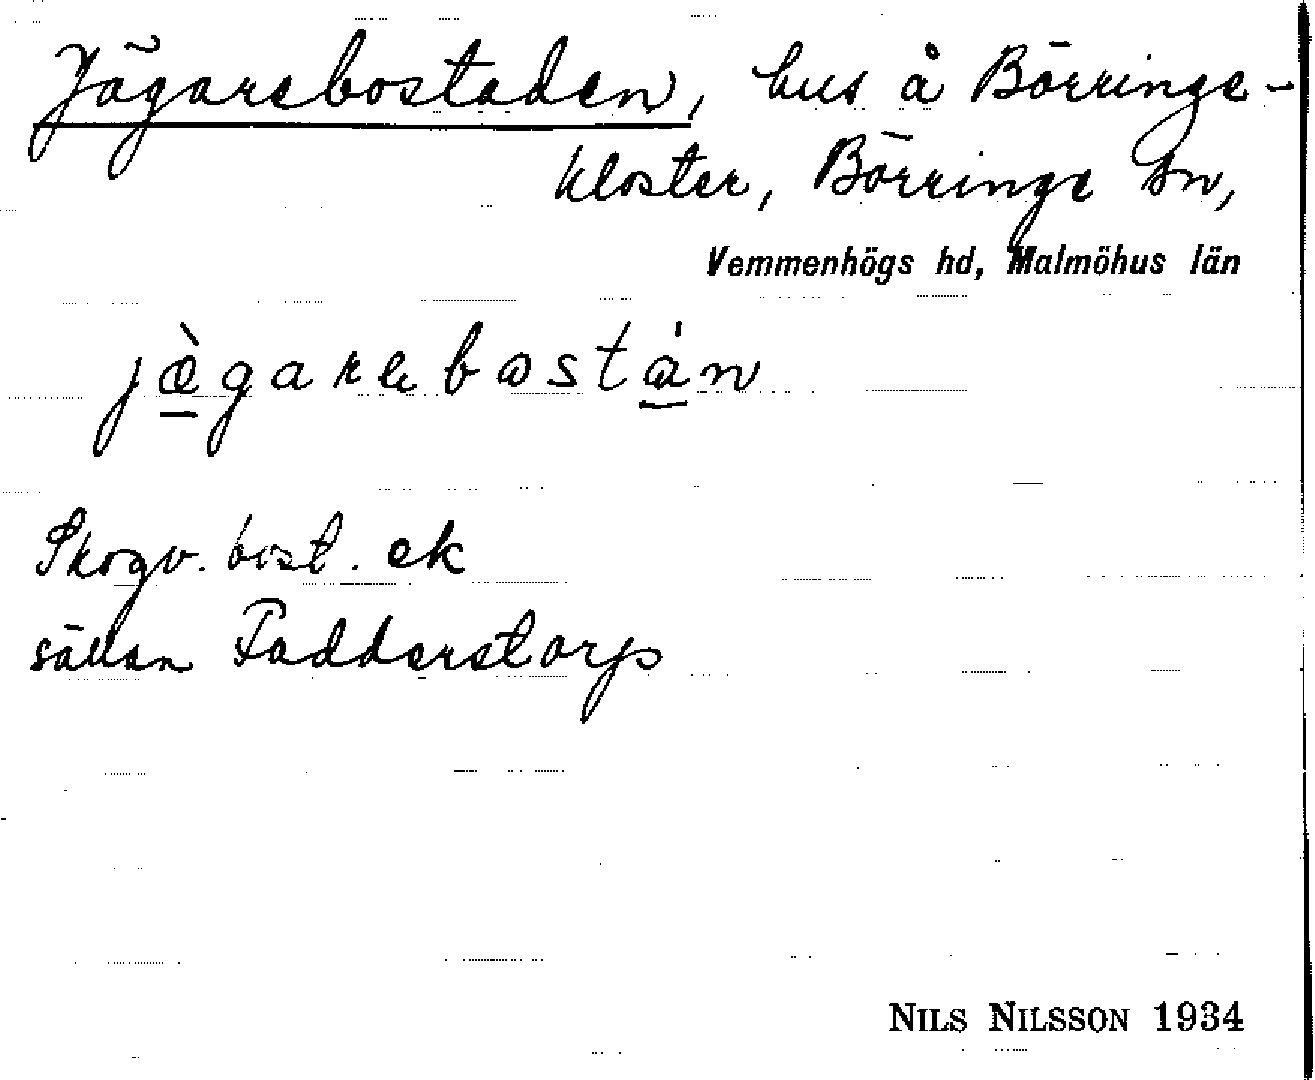 Jägarebostaden, hus å Börringe-
kloster, Börringe sn,
Vemmenhögs hd, Malmöhus län
jæ̀garebostán
Skogv. bost. ek
sällan Fadderstorp
NILS NILSSON 1934